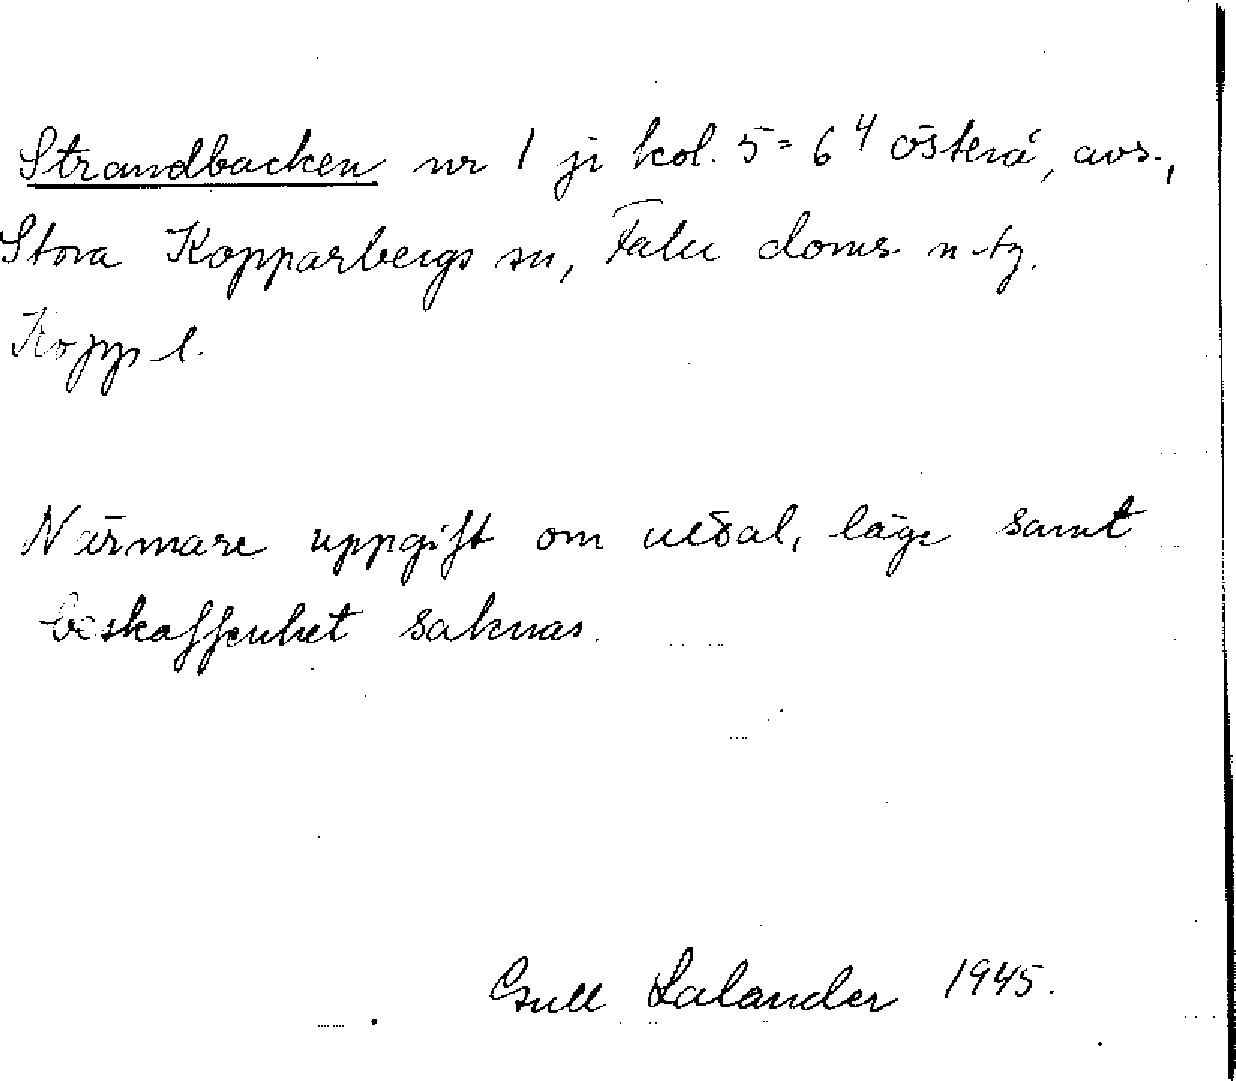 Strandbacken nr 1 ji kol. 5=6⁴ österå, avs.,
Stora Kopparbergs sn, Falu doms. n tg.
Kopps l.
Närmare uppgift om uttal, läge samt
beskaffenhet saknas.
Gull Lalander 1945.